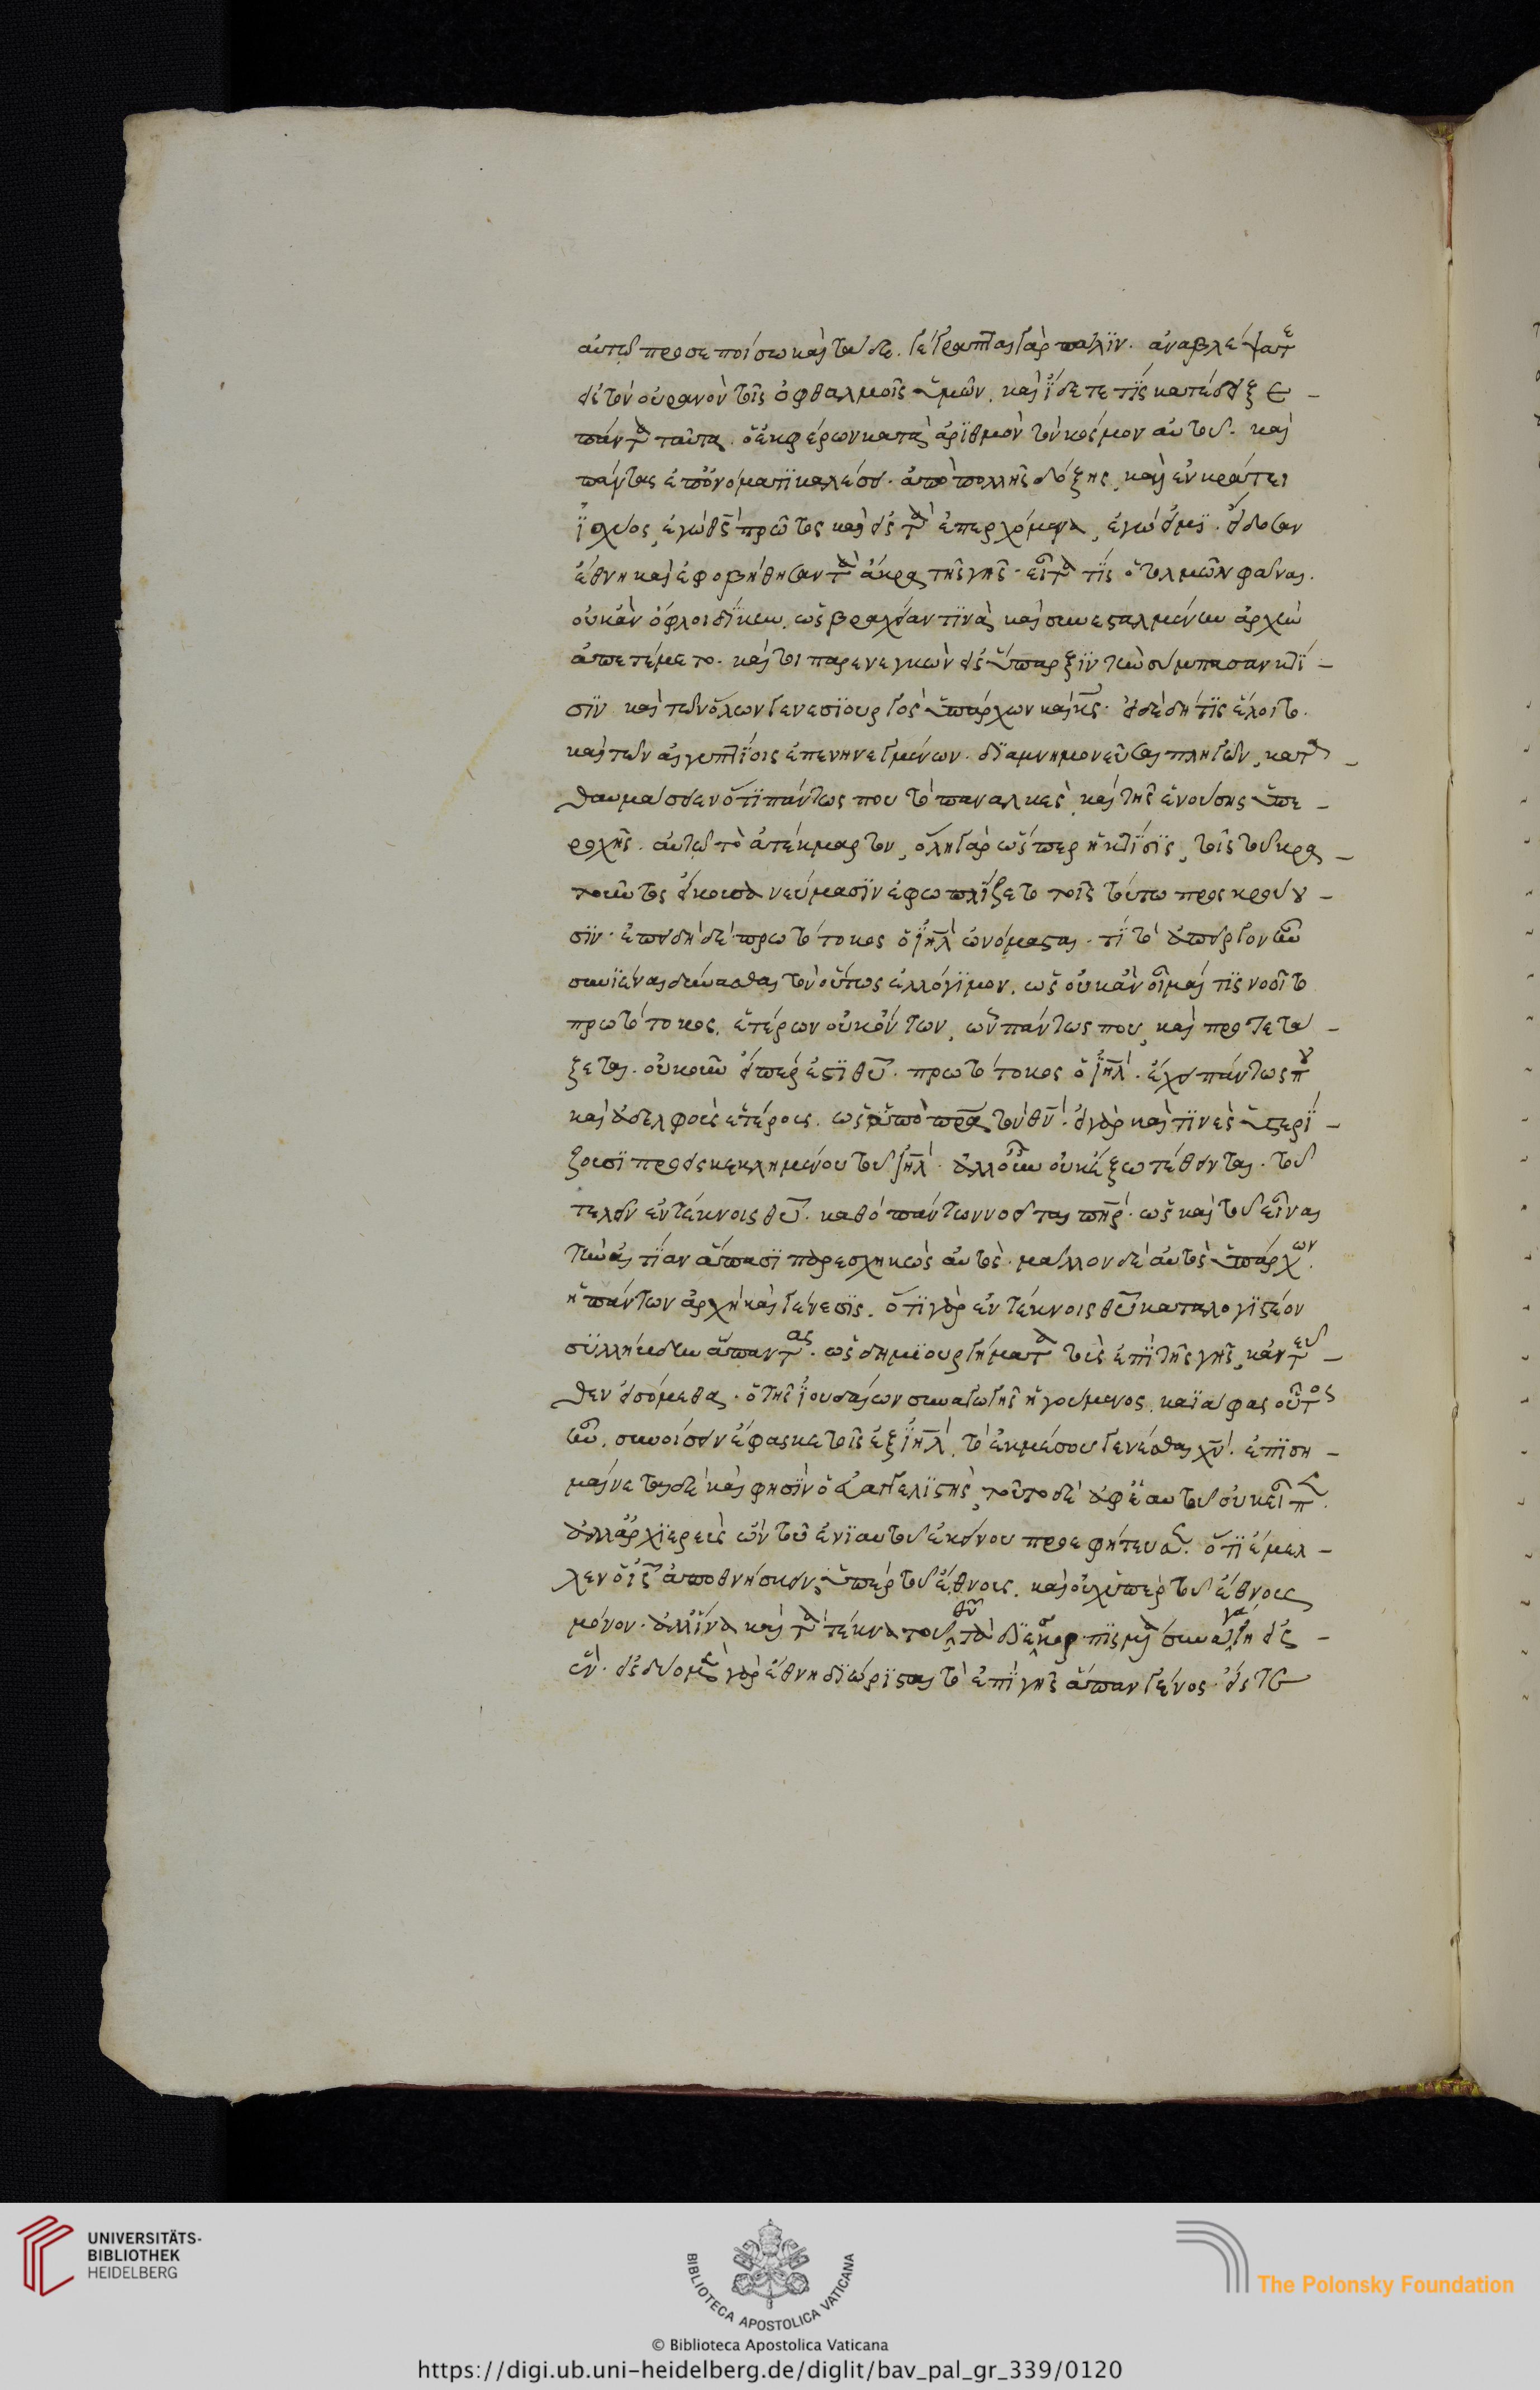 αὐτῷ προσεποίσω καὶ τάδε. γέγραπται γὰρ πάλϊν. ἀναβλέψατε
εἰς τὸν οὐρανὸν τοῖς ὀφθαλμοῖς ὑμῶν. καὶ ἴδετε τίς κατέδειξε –
πάντα ταῦτα. ὁ ἐκφέρων κατὰ ἀρϊθμὸν τὸν κόσμον αὐτοῦ. καὶ
πάντας ἐπ' ὀνόματϊ καλέσει. ἀπὸ πολλῆς δόξης, καὶ ἐν κράτει
ἰσχύος, ἐγὼ θ̅ς̅ πρῶτος καὶ εἰς τὰ ἐπερχόμενα, ἐγὼ εἰμϊ. εἴδοσαν
ἔθνη καὶ ἐφοβήθησαν τὰ ἄκρα τῆς γῆς. εἶτα τίς ὁ τολμῶν φάναι.
οὐκ ἂν ὄφλοι δίκην. ὡς βραχεῖαν τϊνὰ καὶ συνεσταλμένην ἀρχὴν
ἀπετέμετο. καίτοι παρενεγκὼν εἰς ὕπαρξϊν τὴν σύμπασαν κτί –
σϊν καὶ τῶν ὅλων γενεσϊουργὸς ὑπάρχων καὶ κ̅ς̅. εἰ δὲ δή τϊς ἕλοιτο.
καὶ τῶν αἰγυπτίοις ἐπενηνεγμένων. δϊαμνημονεῦσαι πληγῶν, κατα –
θαυμάσειεν ὅτϊ πάντως που τὸ παναλκὲς, καὶ τῆς ἐνούσης ὑπε –
ροχῆς. αὐτῷ τὸ ἀτέκμαρτον, ὅλη γὰρ ὥσπερ ἡ κτίσϊς, τοῖς τοῦ κρα –
τοῦντος εἴκουσα νεύμασϊν ἐφωπλίζετο τοῖς τούτω προσκρούου –
σϊν. ἐπειδὴ δὲ πρωτότοκος ὁ ἰ̅η̅λ̅ ὠνόμασται. τί τὸ ἀπεῖργον ἦν
συνϊέναι δύνασθαι τὸν οὕτως ἐλλόγϊμον. ὡς οὐκ ἂν οἶμαί τϊς νοοῖτο
πρωτότοκος, ἑτέρων οὐκ ὄντων, ὧν πάντως που, καὶ προτετά –
ξεται. οὐκοῦν εἴπερ ἐστϊ θ̅υ̅. πρωτότοκος ὁ ἰ̅η̅λ̅. ἔχει πάντως που
καὶ ἀδελφοὺς ἑτέρους. ὡς ἀπὸ π̅ρ̅α̅ τὸν θ̅ν̅. εἰ γὰρ καὶ τϊνὲς ὑστερί –
ζουσϊ προεισκεκλημένου τοῦ ἰ̅η̅λ̅. ἀλλ' οὖν οὐκ ἔξω τέθεινται. τοῦ
τελεῖν ἐν τέκνοις θ̅υ̅. καθὸ πάντων νοεῖται π̅η̅ρ̅. ὡς καὶ τοῦ εἶναι
τὴν αἰτίαν ἅπασϊ παρεσχηκὼς αὐτὸς. μᾶλλον δὲ αὐτὸς ὑπάρχων.
ἡ πάντων ἀρχὴ καὶ γένεσϊς. ὅτϊ γὰρ ἐν τέκνοις θ̅υ̅ καταλογϊστέον
συλλήβδην ἅπαντας. ὡς δημϊουργήματα τοὺς ἐπὶ τῆς γῆς, κἀντεῦ –
θεν εἰσόμεθα. ὁ τῆς ἰουδαίων συναγωγῆς ἡγούμενος. καϊάφας οὗτος
ἦν. συνοίσειν ἔφασκε τοῖς ἐξ ἰ̅η̅λ̅. τὸ ἐκ μέσου γενέσθαι χ̅ν̅. ἐπϊση –
μαίνεται δὲ καὶ φησϊν ὁ εὐαγγελϊστὴς, τοῦτο δὲ ἀφ' ἑαυτοῦ οὐκ εἶπεν.
ἀλλ' ἀρχϊερεὺς ὢν τοῦ ἐνϊαυτοῦ ἐκείνου προεφήτευσεν. ὅτϊ ἔμελ –
λεν ὁ ἰ̅ς̅ ἀποθνήσκειν, ὑπὲρ τοῦ ἔθνους. καὶ οὐχ ὑπὲρ τοῦ ἔθνους
μόνον. ἀλλ' ἵνα καὶ τὰ τέκνα τοῦ θ̅υ̅ τὰ δϊεσκορπϊσμένα συναγάγη εἰς –
ἕν. εἰς δύο μὲν γὰρ ἔθνη δϊώρϊσται τὸ ἐπὶ γῆς ἅπαν γένος. εἴς τε
UNIVERSITÄTS-
BIBLIOTHEK
HEIDELBERG
BIBLIOTECA APOSTOLICA VATICANA
The Polonsky Foundation
© Biblioteca Apostolica Vaticana
https://digi.ub.uni-heidelberg.de/diglit/bav_pal_gr_339/0120